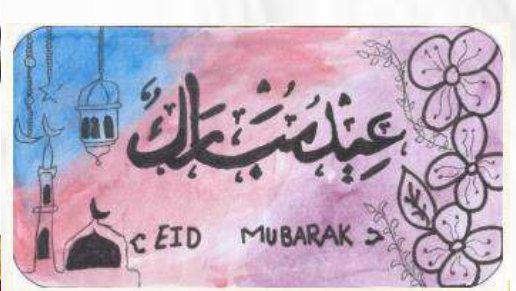 عِيْدٌ مُبَارَكٌ
EID MUBARAK